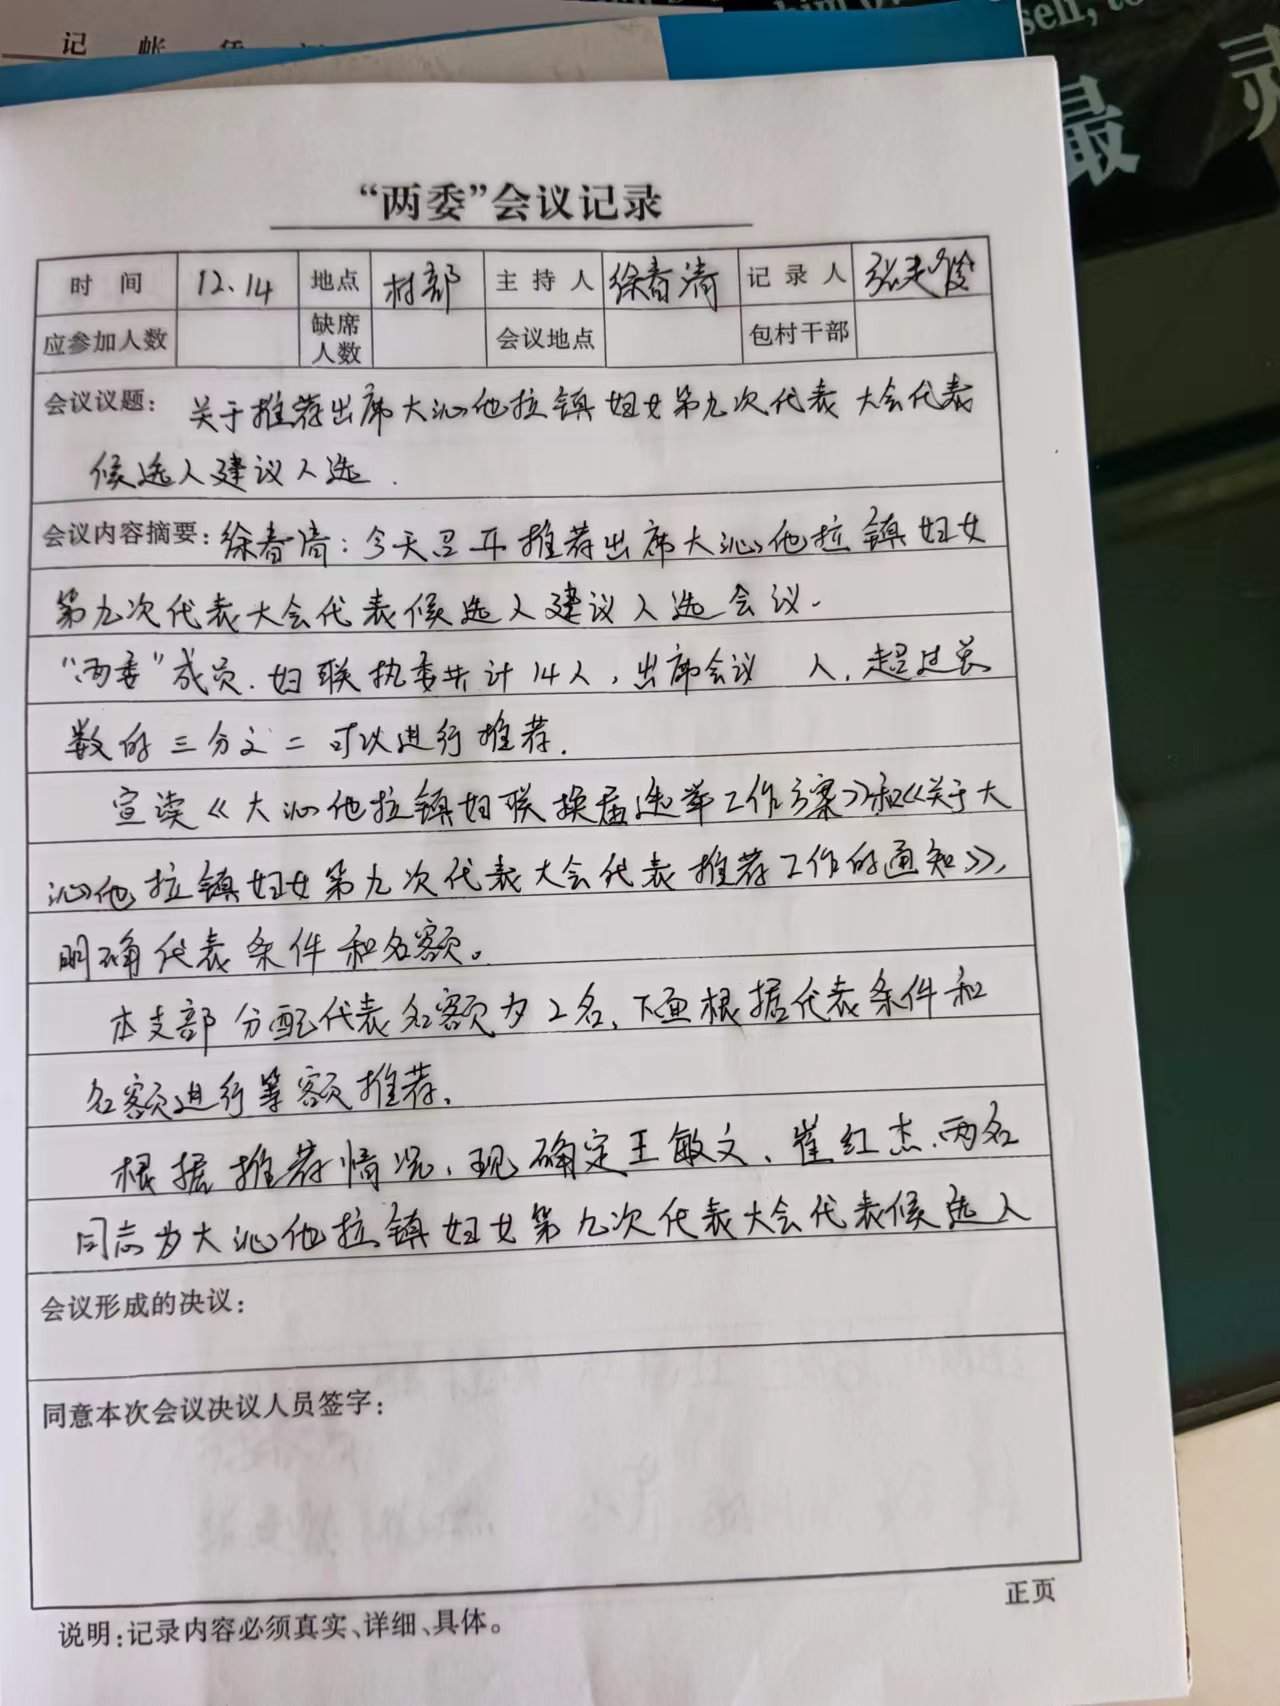 记 帐 凭
self, to
最 灵
“两委”会议记录
时 间 12.14 地点 村部 主 持 人 徐春清 记 录 人
应参加人数 缺席人数 会议地点 包村干部
会议议题： 关于推荐出席大沁他拉镇妇女第九次代表大会代表
候选人建议人选.
会议内容摘要：徐春清：今天召开推荐出席大沁他拉镇妇女
第九次代表大会代表候选人建议人选会议.
“两委”成员.妇联执委共计14人,出席会议 人,超过总
数的三分之二可以进行推荐.
宣读《大沁他拉镇妇联换届选举工作方案》和《关于大
沁他拉镇妇女第九次代表大会代表推荐工作的通知》,
明确代表条件和名额。
本支部分配代表名额为2名,下面根据代表条件和
名额进行等额推荐.
根据推荐情况,现确定王敏文、崔红杰.两名
同志为大沁他拉镇妇女第九次代表大会代表候选人
会议形成的决议：
同意本次会议决议人员签字：
正页
说明：记录内容必须真实、详细、具体。